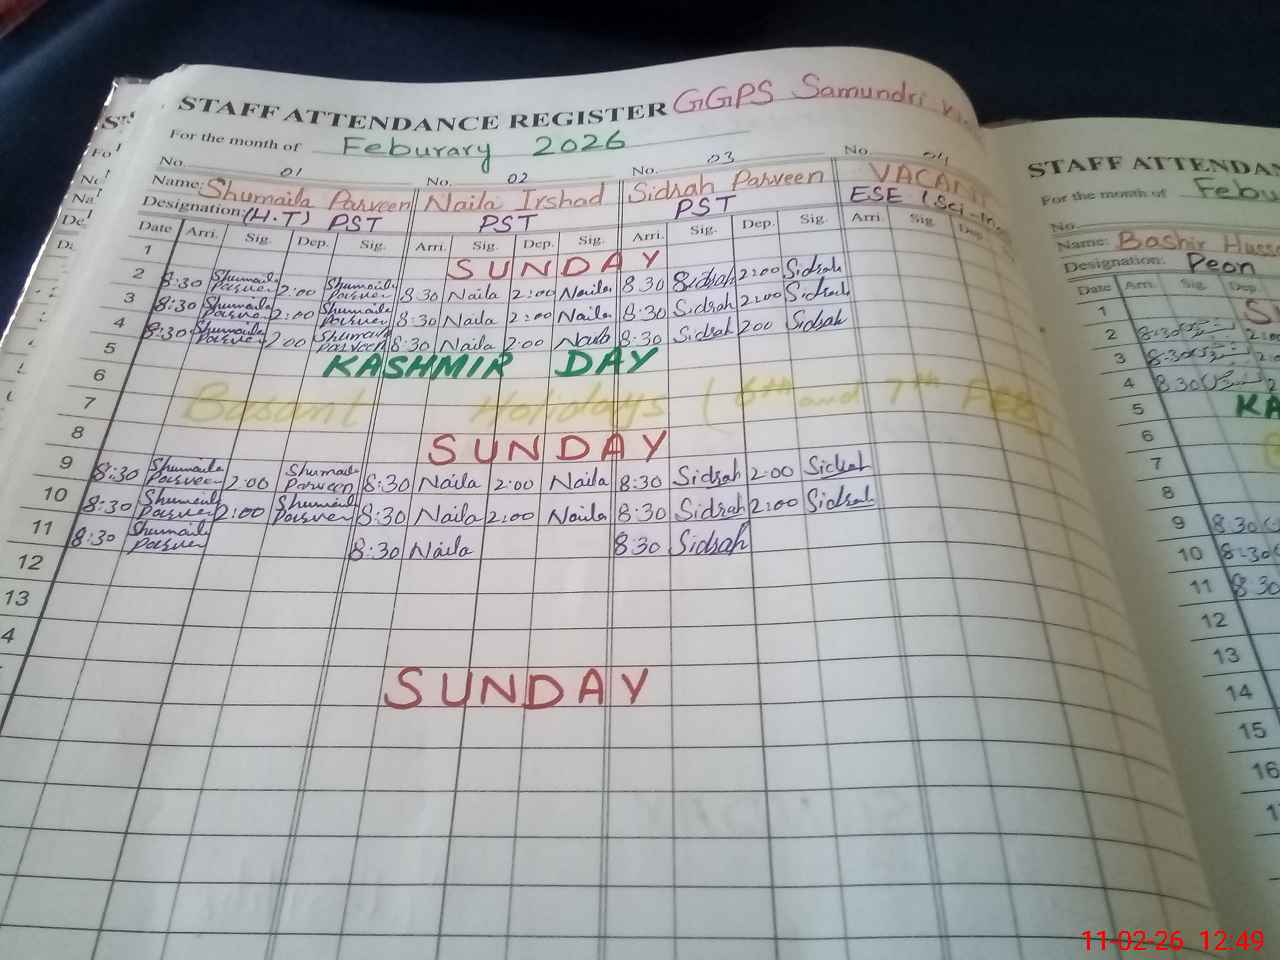 STAFF ATTENDANCE REGISTER GGPS Samundri
For the month of Feburary 2026
No. 01 No. 02 No. 03 No. 04
Name: Shumaila Parveen Naila Irshad Sidrah Parveen
Designation (H.T) PST PST PST ESE
Date Arri. Sig. Dep. Sig. Arri. Sig. Dep. Sig. Arri. Sig. Dep. Sig. Arri. Sig. Dep.
1 SUNDAY
2 8:30 Shumaila Parveen 2:00 Shumaila Parveen 8:30 Naila 2:00 Naila 8:30 Sidrah 2:00 Sidrah
3 8:30 Shumaila Parveen 2:00 Shumaila Parveen 8:30 Naila 2:00 Naila 8:30 Sidrah 2:00 Sidrah
4 8:30 Shumaila Parveen 2:00 Shumaila Parveen 8:30 Naila 2:00 Naila 8:30 Sidrah 2:00 Sidrah
5 KASHMIR DAY
6
7 Basant Holidays (6th and 7th FEB)
8 SUNDAY
9 8:30 Shumaila Parveen 2:00 Shumaila Parveen 8:30 Naila 2:00 Naila 8:30 Sidrah 2:00 Sidrah
10 8:30 Shumaila Parveen 2:00 Shumaila Parveen 8:30 Naila 2:00 Naila 8:30 Sidrah 2:00 Sidrah
11 8:30 Shumaila Parveen 8:30 Naila 8:30 Sidrah
12
13
4
SUNDAY
STAFF ATTENDAN
For the month of Febu
No.
Name: Bashir Huss
Designation: Peon
Date Arri. Sig. Dep
1 S
2 8:30
3 8:30
4 8:30
5 KA
6
7
8
9 8:30
10 8:30
11 8:30
12
13
14
15
16
11-02-26 12:49